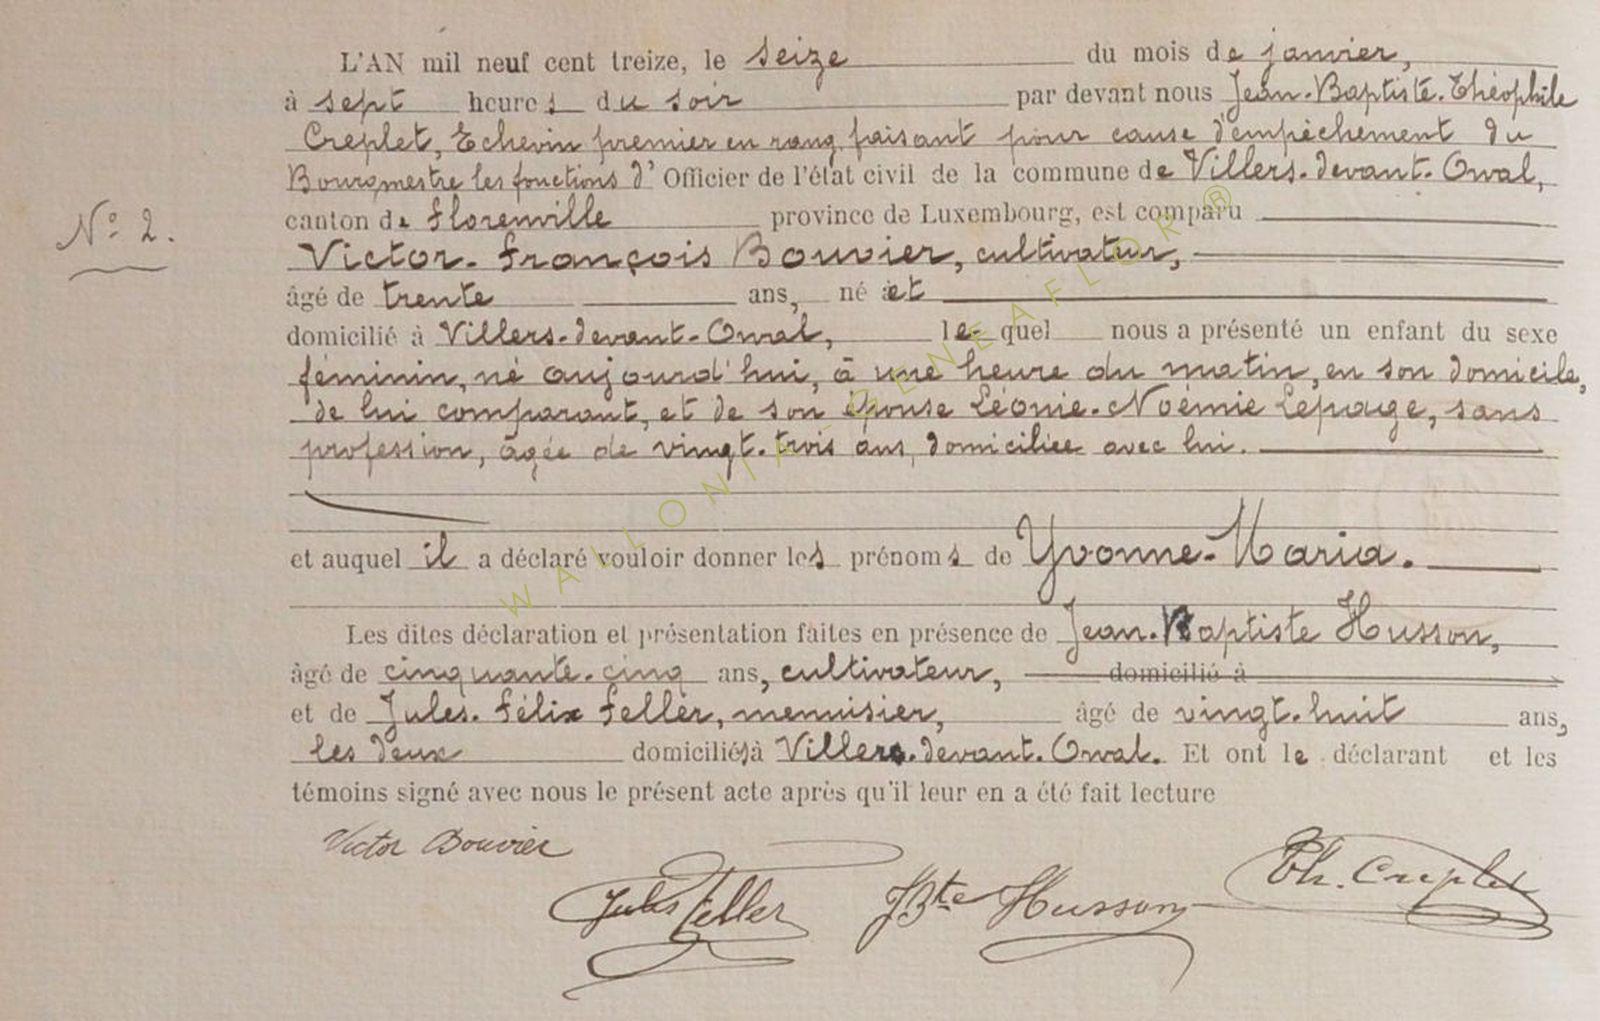 L'AN mil neuf cent treize, le seize du mois de janvier,
à sept heures du soir par devant nous Jean-Baptiste-Théophile
Creplet, Echevin premier en rang faisant pour cause d'empêchement du
Bourgmestre les fonctions d' Officier de l'état civil de la commune de Villers-devant-Orval,
N° 2.
canton de Florenville province de Luxembourg, est comparu
Victor-François Bouvier, cultivateur,
âgé de trente ans, né et
domicilié à Villers-devant-Orval, lequel nous a présenté un enfant du sexe
féminin, né aujourd'hui, à une heure du matin, en son domicile,
de lui comparant, et de son épouse Léonie-Noémie Lepage, sans
profession, âgée de vingt-trois ans, domiciliée avec lui.
et auquel il a déclaré vouloir donner les prénoms de Yvonne-Maria.
Les dites déclaration et présentation faites en présence de Jean-Baptiste Husson,
âgé de cinquante-cinq ans, cultivateur, domicilié à
et de Jules-Félix Feller, menuisier, âgé de vingt-huit ans,
les deux domiciliés à Villers-devant-Orval. Et ont le déclarant et les
témoins signé avec nous le présent acte après qu'il leur en a été fait lecture
Victor Bouvier
Jules Feller JBte Husson Th. Creplet
WALLONIA GENEAFLOR ®